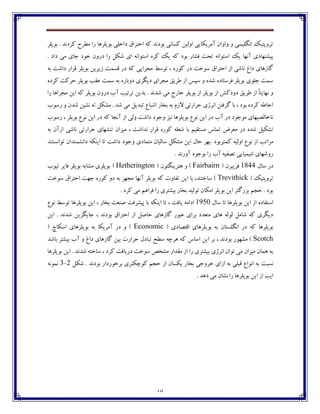 ترویتیک انگلیسی و واوان آمریکایی اولین کسانی بودند که احتراق داخلی بویلرها را مطرح کردند . بویلر
پیشنهادی آنها یک استوانه تحت فشار بود که یک کره استوانه ای شکل را درون خود جای می داد .
گازهای داغ ناشی از احتراق سوخت در کوره ، توسط مجرایی که در قسمت زیرین بویلر قرار داشت به
سمت جلوی بویلر فرستاده شده و سپس از طریق مجرای دیگری دوباره به سمت عقب بویلر حرکت کرده
و نهایتاً از طریق دودکش از بویلر از بویلر خارج می شدند . بدین ترتیب آب درون بویلر که این مجراها را
احاطه کرده بود ، با گرفتن انرژی حرارتی لازم به بخار اشباع تبدیل می شد . مشکل ته نشین شدن و رسوب
ناخالصیهای موجود در آب در این نوع بویلرها نیز وجود داشت ولی از آنجا که در این نوع بویلر ، رسوب
تشکیل شده در معرض تماس مستقیم با شعله کوره قرار نداشت ، میزان تنشهای حرارتی ناشی ازآن به
مراتب از نوع اولیه کمتربود .بهر حال این مشکل سالیان متمادی وجود داشت تا اینکه دانشمندان توانستند
روشهای شیمیایی تصفیه آب را بوجود آورند .
در سال 1844 فریبرن ( Fairbairn ) و هترینگتون ( Hetherington ) بویلری مشابه بویلر فایر تیوب
ترویتیک ( Trevithick ) ساختند، با این تفاوت که بویلر آنها مجهز به دو کوره جهت احتراق سوخت
بود . حجم بزرگتر این بویلر امکان تولید بخار بیشتری را فراهم می کرد .
استفاده از این بویلرها تا سال 1950 ادامه یافت ، تا اینکه با پیشرفت صنعت بخار ، این بویلرها توسط نوع
دیگری که شامل لوله های متعدد برای عبور گازهای حاصل از احتراق بودند ، جایگزین شدند . این
بویلرها که در انگلستان به بویلرهای اقتصادی ( Economic ) و در آمریکا به بویلرهای اسکاچ (
Scotch مشهور بودند ، بر این اساس که هرچه سطح تبادل حرارت بین گازهای داغ و آب بیشتر باشد
به همان میزان می توان انرژی بیشتری را از مقدار مشخص سوخت دریافت کرد ، ساخته شدند . این بویلرها
نسبت به انواع قبلی به ازای خروجی بخار یکسان از حجم کوچکتری برخوردار بودند . شکل 2-3 نمونه
ایب از این بویلرها را نشان می دهد .